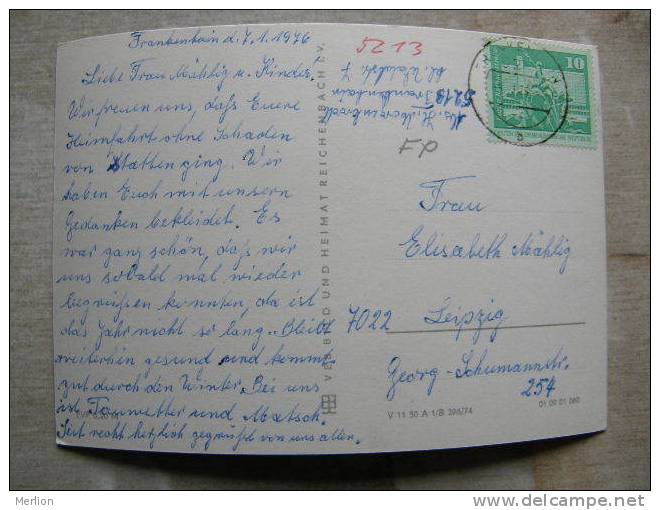 Frankenhain d. 7.1.1976
Liebe Frau Mählig u. Kinder!
Wir freuen uns daß Euere
Heimfahrt ohne Schaden
von statten ging. Wir
haben Euch mit unsern
Gedanken bekleidet. Es
war ganz schön, daß wir
uns sobald mal wieder
begrüßen konnten, da ist
das Jahr nicht so lang. Bleibt
weiterhin gesund und kommt
gut durch den Winter. Bei uns
ist Tauwetter und Matsch.
Seit recht herzlich gegrüßt von uns allen.
VEB BILD UND HEIMAT REICHENBACH I. V.
5213
Abs. H.
kl. Waldstr. 7
5213 Frankenhain
FP
10
Frau
Elisabeth Mählig
7022 Leipzig
Georg-Schumannstr.
254
V 11 50 A 1/B 396/74
01 09 01 060
Merlion
www.delcampe.net